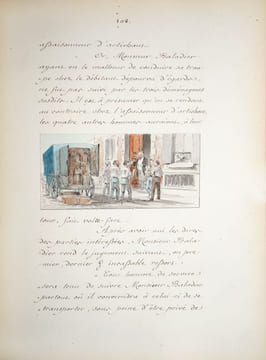 108.
assaisonneur d'artichaut.
Or, Monsieur Baladier
ayant eu le malheur de conduire sa trou-
pe chez le débitant dépourvu d'égards,
ne fut pas suivi par les trois déménageurs
susdits. Il est à présumer qu'ils se rendront
au contraire, chez l'assaisonneur d'artichaut,
les quatre autres hommes auraient, à leur
tour, fait volte-face.
Après avoir ouï les dires
des parties intéressées, Monsieur Bala-
dier rend le jugement suivant, en pre-
mier, dernier & incassable ressort.
Tout homme de service
sera tenu de suivre Monsieur Baladier
partout où il conviendra à celui-ci de se
transporter, sous peine d'être privé de